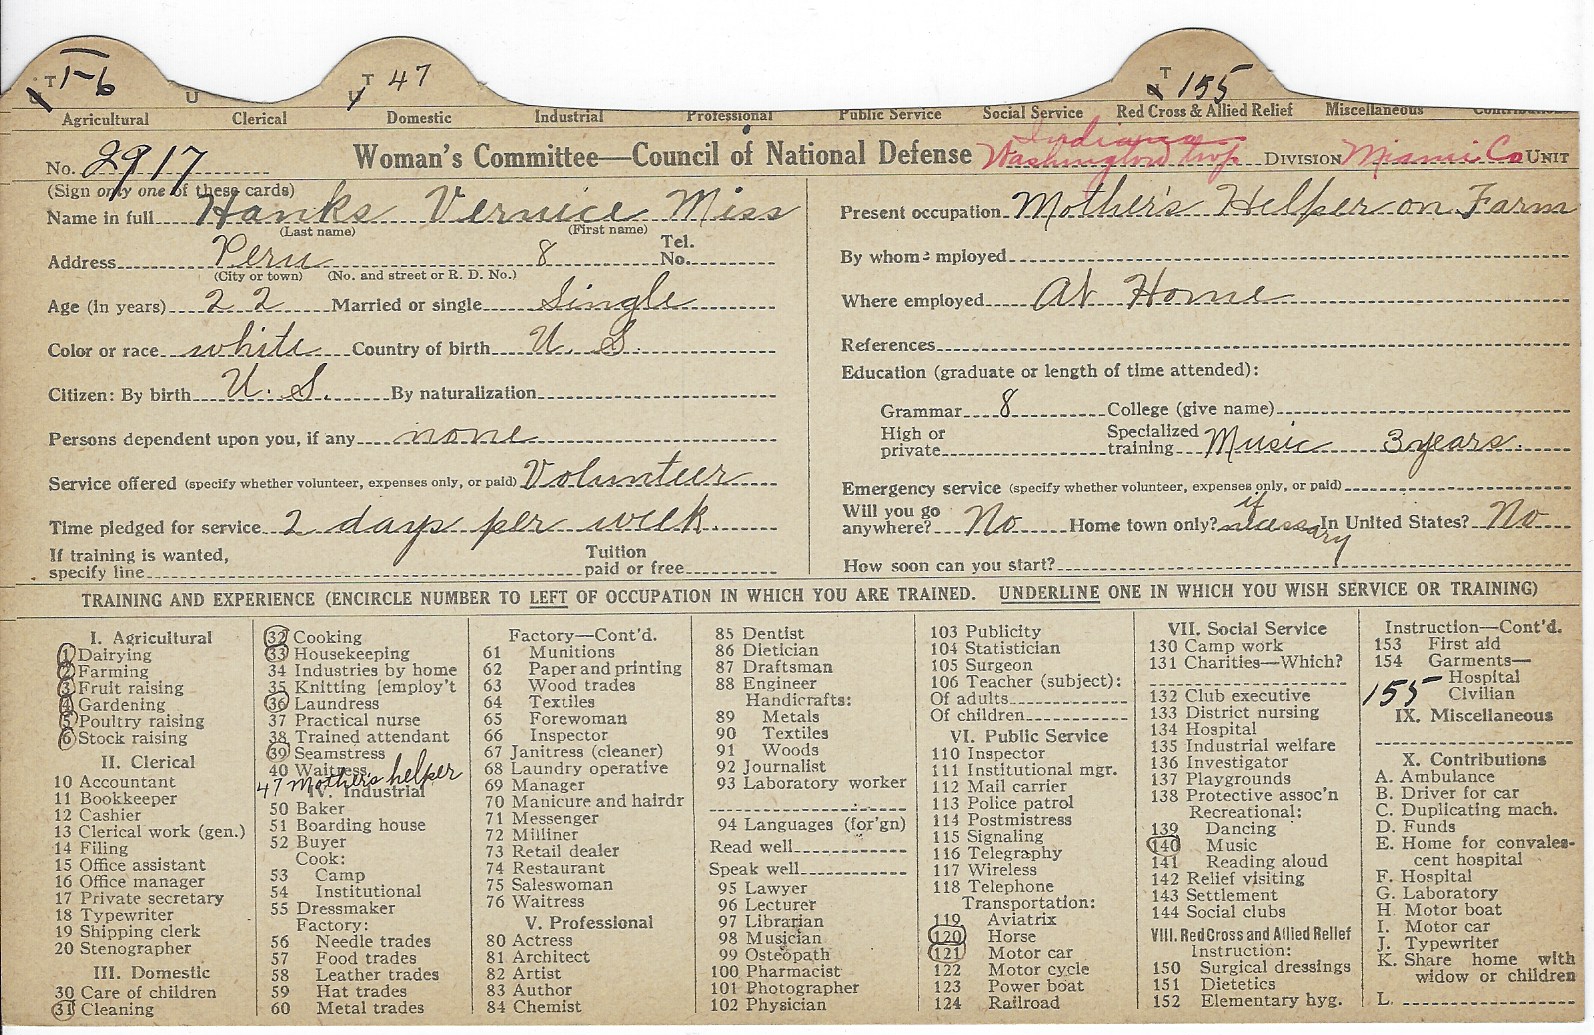 T 1-6
U
U
T 47
U
T 155
Agricultural Clerical Domestic Industrial Professional Public Service Social Service Red Cross & Allied Relief Miscellaneous
No. 2917 Woman's Committee—Council of National Defense Indiana Washington twp DIVISION Miami Co UNIT
(Sign only one of these cards)
Name in full Hanks Vernice Miss
(Last name) (First name)
Address Peru 8 Tel. No.
(City or town) (No. and street or R. D. No.)
Age (in years) 22 Married or single Single
Color or race white Country of birth U. S.
Citizen: By birth U. S. By naturalization
Persons dependent upon you, if any none
Service offered (specify whether volunteer, expenses only, or paid) Volunteer
Time pledged for service 2 days per week.
If training is wanted, specify line Tuition paid or free
Present occupation Mother's Helper on Farm
By whom employed
Where employed At Home
References
Education (graduate or length of time attended):
Grammar 8 College (give name)
High or private Specialized training Music 3 years.
Emergency service (specify whether volunteer, expenses only, or paid)
Will you go anywhere? No Home town only? if necessary In United States? No
How soon can you start?
TRAINING AND EXPERIENCE (ENCIRCLE NUMBER TO LEFT OF OCCUPATION IN WHICH YOU ARE TRAINED. UNDERLINE ONE IN WHICH YOU WISH SERVICE OR TRAINING)
I. Agricultural
1 Dairying
2 Farming
3 Fruit raising
4 Gardening
5 Poultry raising
6 Stock raising
II. Clerical
10 Accountant
11 Bookkeeper
12 Cashier
13 Clerical work (gen.)
14 Filing
15 Office assistant
16 Office manager
17 Private secretary
18 Typewriter
19 Shipping clerk
20 Stenographer
III. Domestic
30 Care of children
31 Cleaning
32 Cooking
33 Housekeeping
34 Industries by home
35 Knitting [employ't
36 Laundress
37 Practical nurse
38 Trained attendant
39 Seamstress
40 Waitress
47 Mother's helper
IV. Industrial
50 Baker
51 Boarding house
52 Buyer
Cook:
53 Camp
54 Institutional
55 Dressmaker
Factory:
56 Needle trades
57 Food trades
58 Leather trades
59 Hat trades
60 Metal trades
Factory—Cont'd.
61 Munitions
62 Paper and printing
63 Wood trades
64 Textiles
65 Forewoman
66 Inspector
67 Janitress (cleaner)
68 Laundry operative
69 Manager
70 Manicure and hairdr
71 Messenger
72 Milliner
73 Retail dealer
74 Restaurant
75 Saleswoman
76 Waitress
V. Professional
80 Actress
81 Architect
82 Artist
83 Author
84 Chemist
85 Dentist
86 Dietician
87 Draftsman
88 Engineer
Handicrafts:
89 Metals
90 Textiles
91 Woods
92 Journalist
93 Laboratory worker
94 Languages (for'gn)
Read well
Speak well
95 Lawyer
96 Lecturer
97 Librarian
98 Musician
99 Osteopath
100 Pharmacist
101 Photographer
102 Physician
103 Publicity
104 Statistician
105 Surgeon
106 Teacher (subject):
Of adults
Of children
VI. Public Service
110 Inspector
111 Institutional mgr.
112 Mail carrier
113 Police patrol
114 Postmistress
115 Signaling
116 Telegraphy
117 Wireless
118 Telephone
Transportation:
119 Aviatrix
120 Horse
121 Motor car
122 Motor cycle
123 Power boat
124 Railroad
VII. Social Service
130 Camp work
131 Charities—Which?
132 Club executive
133 District nursing
134 Hospital
135 Industrial welfare
136 Investigator
137 Playgrounds
138 Protective assoc'n
Recreational:
139 Dancing
140 Music
141 Reading aloud
142 Relief visiting
143 Settlement
144 Social clubs
VIII. Red Cross and Allied Relief
Instruction:
150 Surgical dressings
151 Dietetics
152 Elementary hyg.
Instruction—Cont'd.
153 First aid
154 Garments—
Hospital
155 Civilian
IX. Miscellaneous
X. Contributions
A. Ambulance
B. Driver for car
C. Duplicating mach.
D. Funds
E. Home for convales-
cent hospital
F. Hospital
G. Laboratory
H. Motor boat
I. Motor car
J. Typewriter
K. Share home with
widow or children
L.